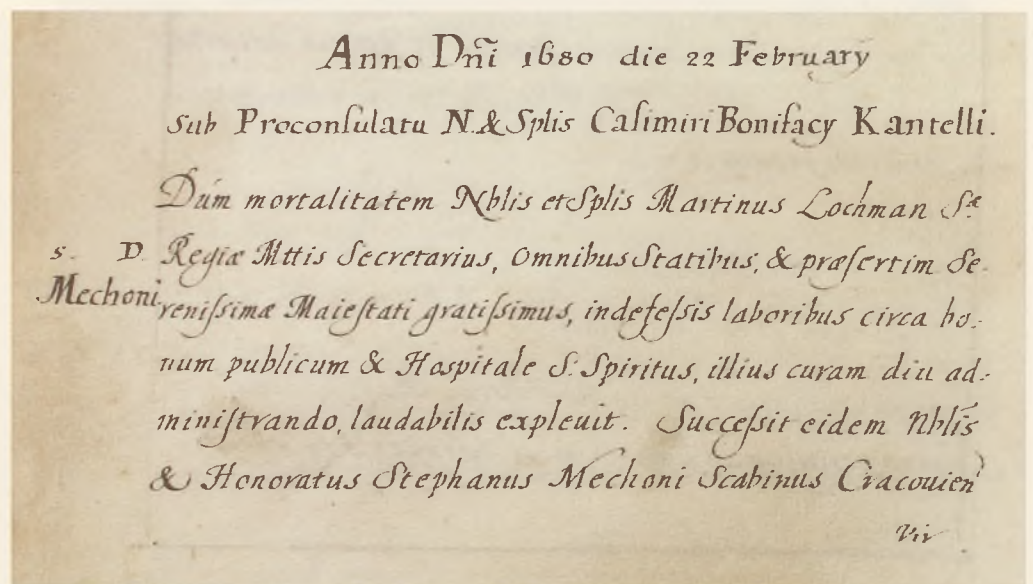 Anno Dn̄i 1680 die 22 February
Sub Proconſulatu N. & Splis Caſimiri Bonifacy Kantelli.
Dum mortalitatem Nblis et Splis Martinus Lochman Sæ
S. D. Regiæ Mttis Secretarius, Omnibus Statibus, & præſertim Se-
Mechoni reniſsimæ Maieſtati gratiſsimus, indefeſsis laboribus circa bo-
num publicum & Hospitale S: Spiritus, illius curam diu ad-
miniſtrando, laudabilis expleuit. Succeſsit eidem Nblis
& Honoratus Stephanus Mechoni Scabinus Cracouien̄
Vir